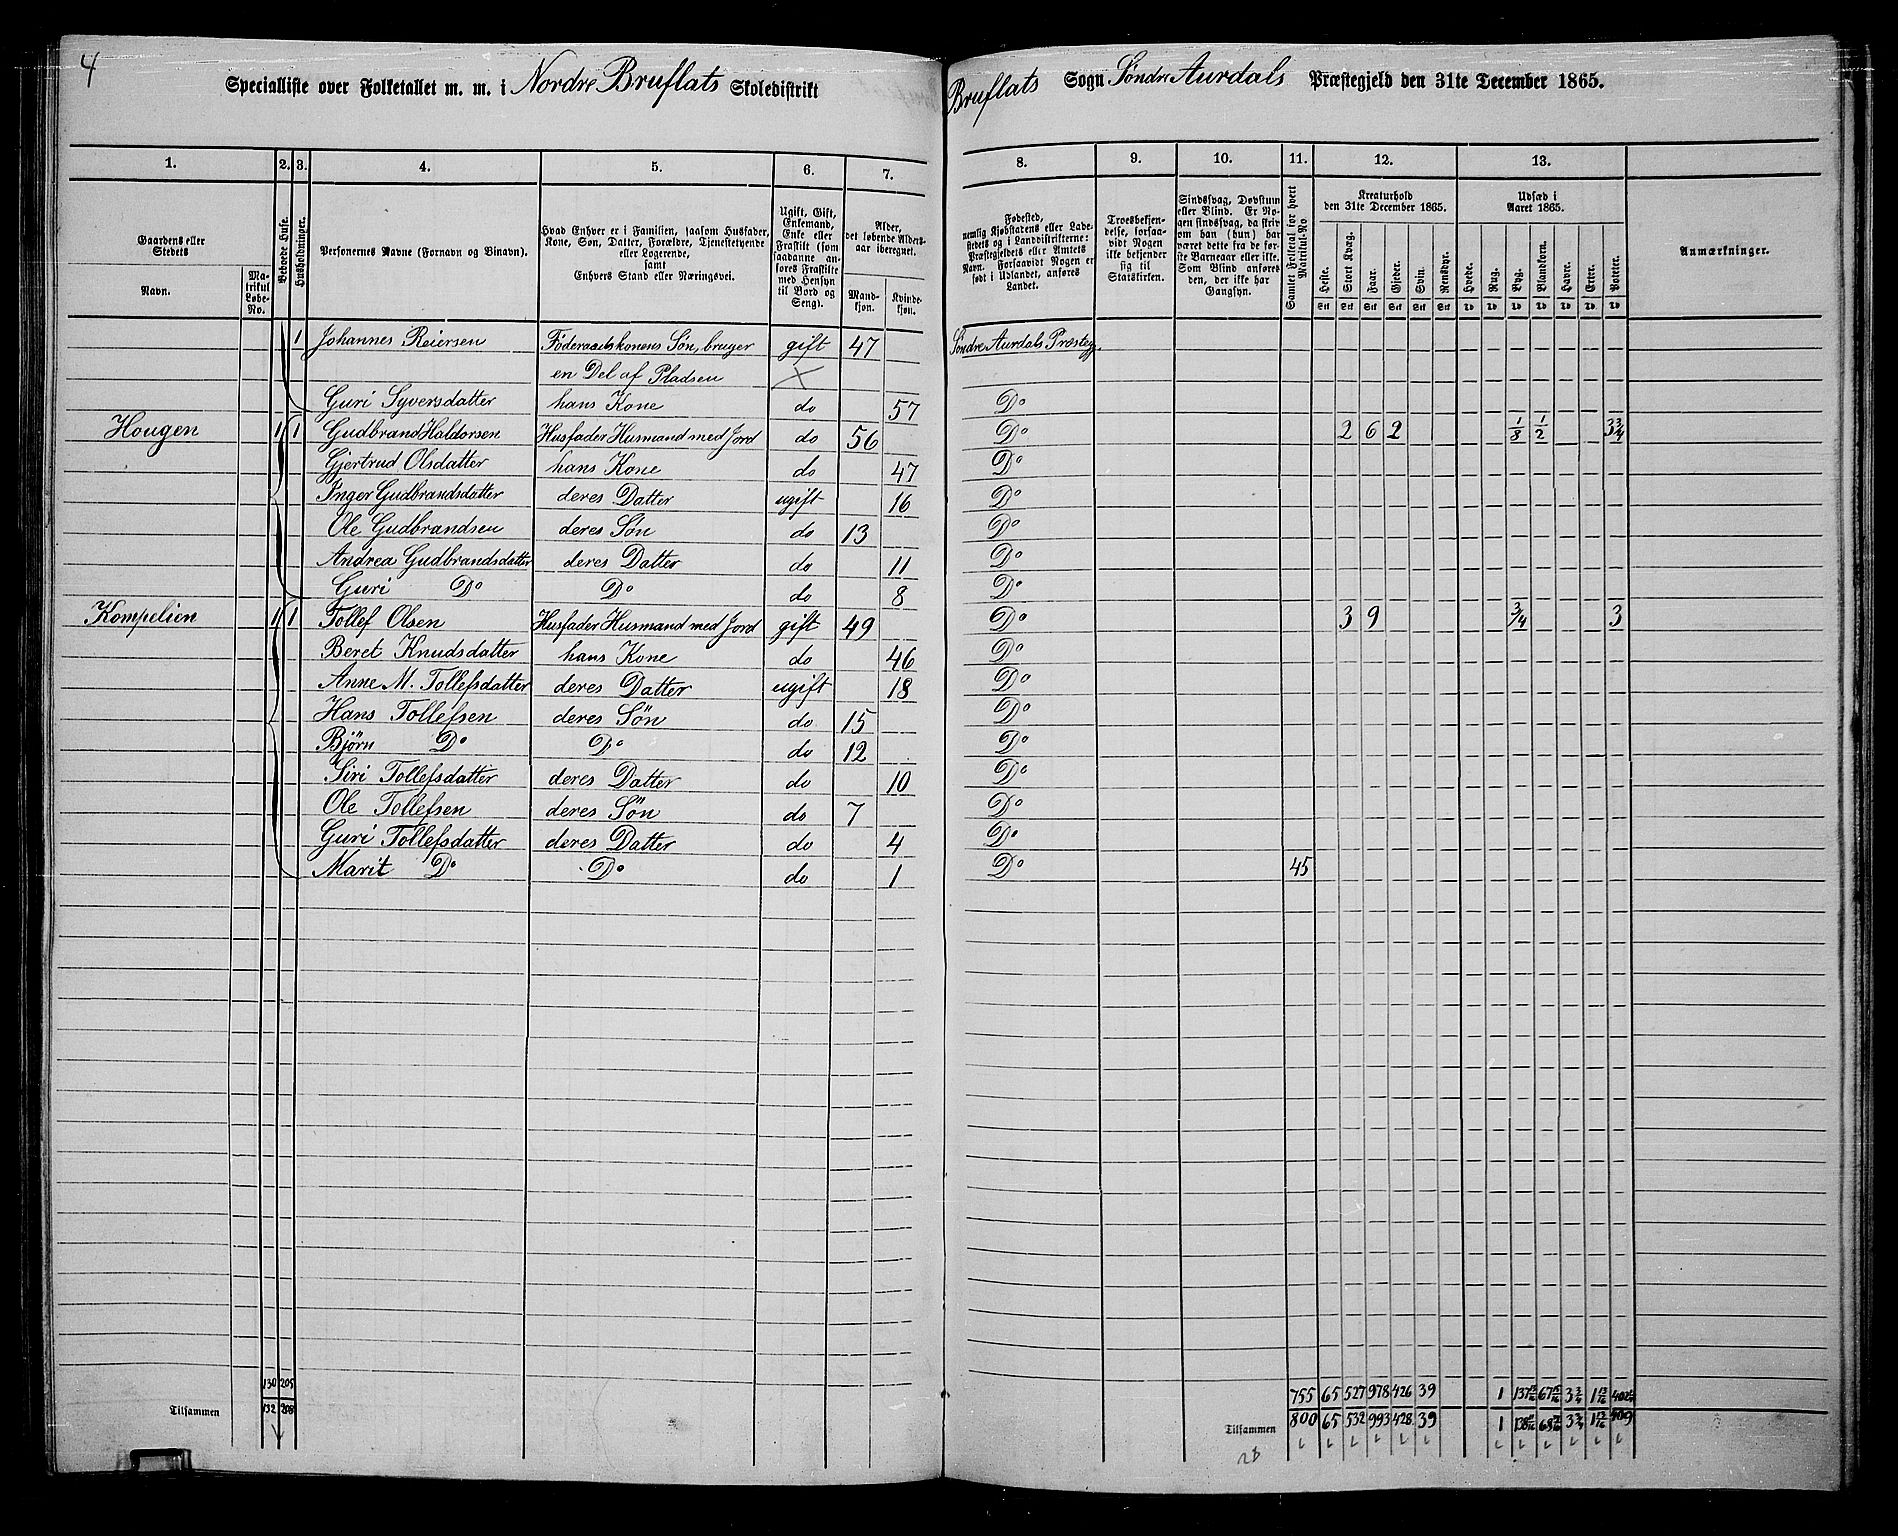 4
Specialliste over Folketallet m. m. i Nordre Bruflats Skoledistrikt Bruflats Sogn Søndre Aurdals Præstegjeld den 31te December 1865.
1. 2. 3. 4. 5. 6. 7. 8. 9. 10. 11. 12. 13.
Gaardens eller Stedets
Navn.
Matrikul Løbe-No.
Beboede Huse.
Husholdninger.
Personernes Navne (Fornavn og Binavn).
Hvad Enhver er i Familien, saasom Husfader, Kone, Søn, Datter, Forældre, Tjenestetyende eller Logerende, samt Enhvers Stand eller Næringsvei.
Ugift, Gift, Enkemand, Enke eller Fraskilt (som saadanne anføres Fraskilte med Hensyn til Bord og Seng).
Alder, det løbende Aldersaar iberegnet.
Mandkjøn.
Kvindekjøn.
Fødested, nemlig Kjøbstadens eller Ladestedets og i Landdistrikterne: Præstegjeldets eller Amtets Navn. Forsaavidt Nogen er født i Udlandet, anføres Landet.
Troesbekjendelse, forsaavidt Nogen ikke bekjender sig til Statskirken.
Sindssvag, Døvstum eller Blind. Er Nogen sindssvag, da skrives om han (hun) har været dette fra de første Barneaar eller ikke. Som Blind anføres den, der ikke har Gangsyn.
Samlet Folketal for hvert Matrikul-No
Kreaturhold den 31te December 1865.
Heste. Stort Kvæg. Faar. Gjeder. Svin. Rensdyr.
Udsæd i Aaret 1865.
Hvede. Rug. Byg. Blandkorn. Havre. Erter. Poteter.
Anmærkninger.
1 Johannes Reiersen Føderaadskonens Søn, bruger gift 47 Søndre Aurdals Præsteg.
en Del af Pladsen
Guri Syversdatter hans Kone do 57 Do
Hougen 1 1 Gudbrand Haldorsen Husfader Husmand med Jord do 56 Do 2 6 2 1/8 1/2 3 3/4
Gjertrud Olsdatter hans Kone do 47 Do
Inger Gudbrandsdatter deres Datter ugift 16 Do
Ole Gudbrandsen deres Søn do 13 Do
Andrea Gudbrandsdatter deres Datter do 11 Do
Guri Do Do do 8 Do
Kompelien 1 1 Tollef Olsen Husfader Husmand med Jord gift 49 Do 3 9 3/4 3
Beret Knudsdatter hans Kone do 46 Do
Anne M. Tollefsdatter deres Datter ugift 18 Do
Hans Tollefsen deres Søn do 15 Do
Bjørn Do Do do 12 Do
Siri Tollefsdatter deres Datter do 10 Do
Ole Tollefsen deres Søn do 7 Do
Guri Tollefsdatter deres Datter do 4 Do
Marit Do Do do 1 Do 45
130 205 755 65 527 978 426 39 1 3 3/4 1 13/16
Tilsammen 132 208 Tilsammen 800 65 532 993 428 39 1 3 3/4 1 13/16 409